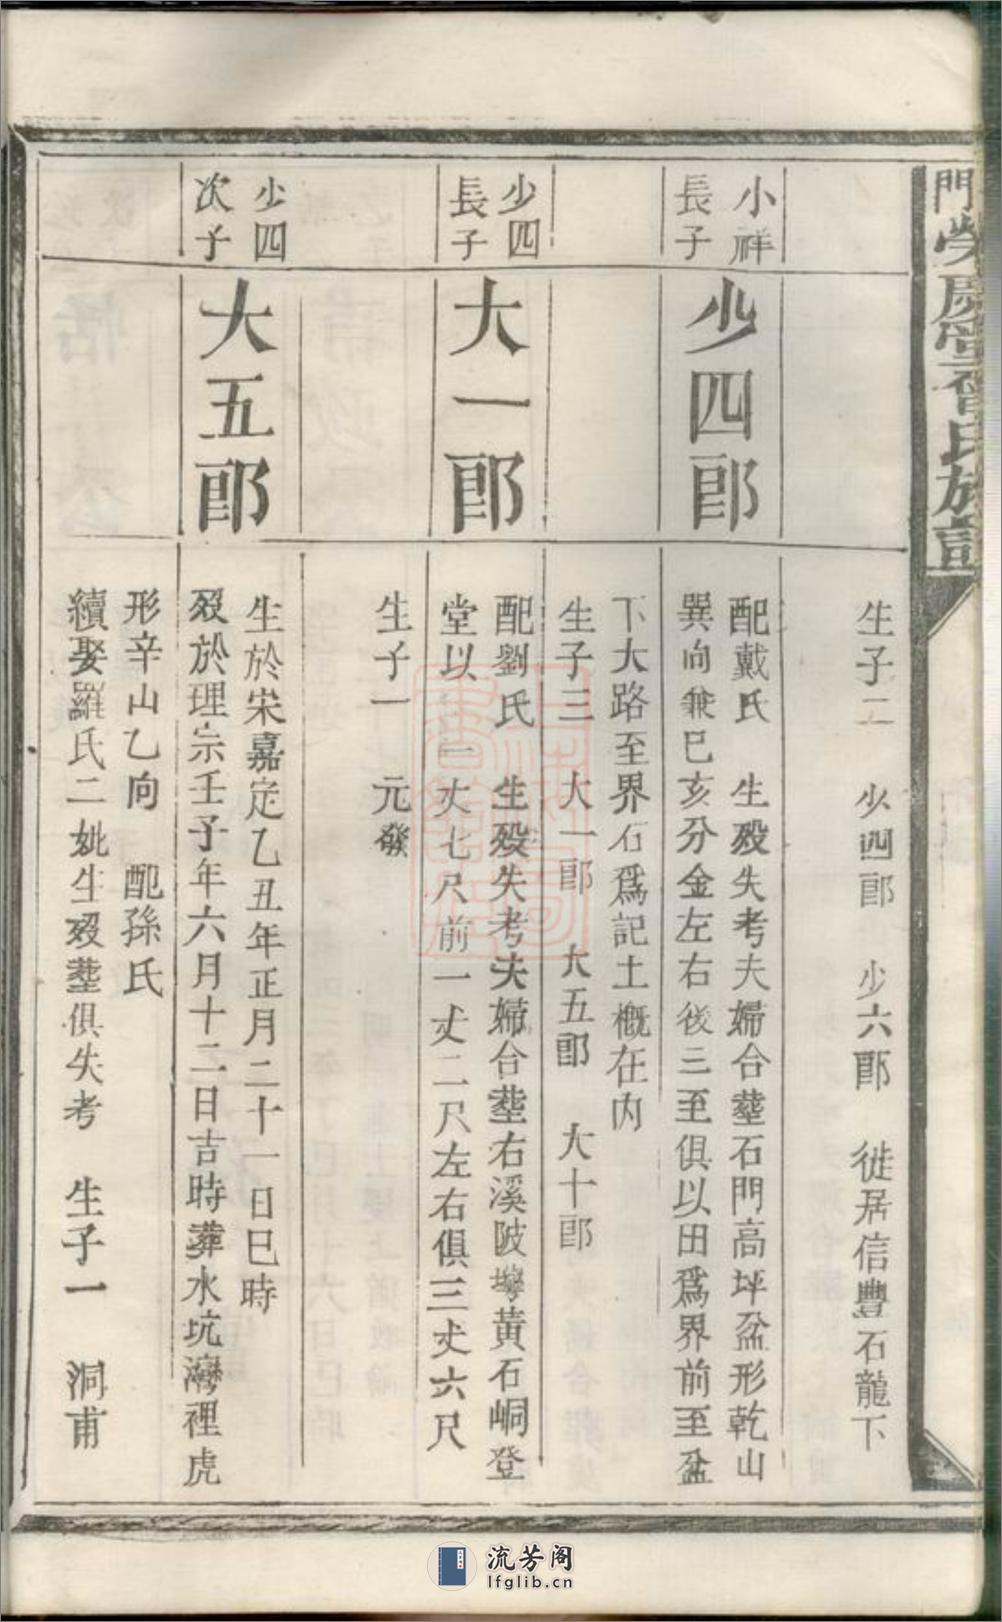 門榮慶堂曾氏族譜
生子二　少四郎　少六郎　徙居信豐石龍下
小祥
長子
少四郎
配戴氏　生殁失考夫婦合塟石門高坪盆形乾山
巽向兼巳亥分金左右後三至俱以田爲界前至盆
下大路至界石爲記土概在内
生子三　大一郎　大五郎　大十郎
少四
長子
大一郎
配劉氏　生殁失考夫婦合塟右溪陂塝黄石峒登
堂以後一丈七尺前一丈二尺左右俱三丈六尺
生子一　元發
少四
次子
大五郎
生於宋嘉定乙丑年正月二十一日巳時
殁於理宗壬子年六月十二日吉時葬水坑灣裡虎
形辛山乙向　配孫氏
續娶羅氏二妣生殁塟俱失考　生子一　洞甫
流芳阁
lfglib.cn